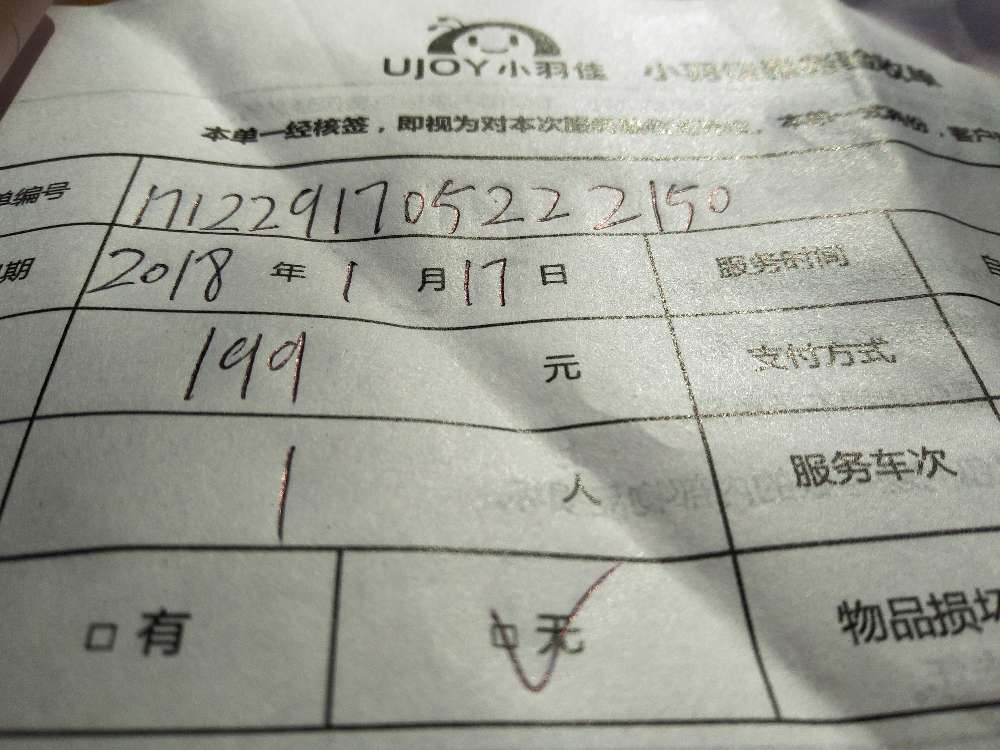 UJOY小羽佳 小羽佳 收单
本单一经核签，即视为对本次服务 客户
单编号 171229170522 2150
期 2018 年 1 月 17 日 服务时间
199 元 支付方式
1 人 服务车次
□ 有 □ 无 物品损坏